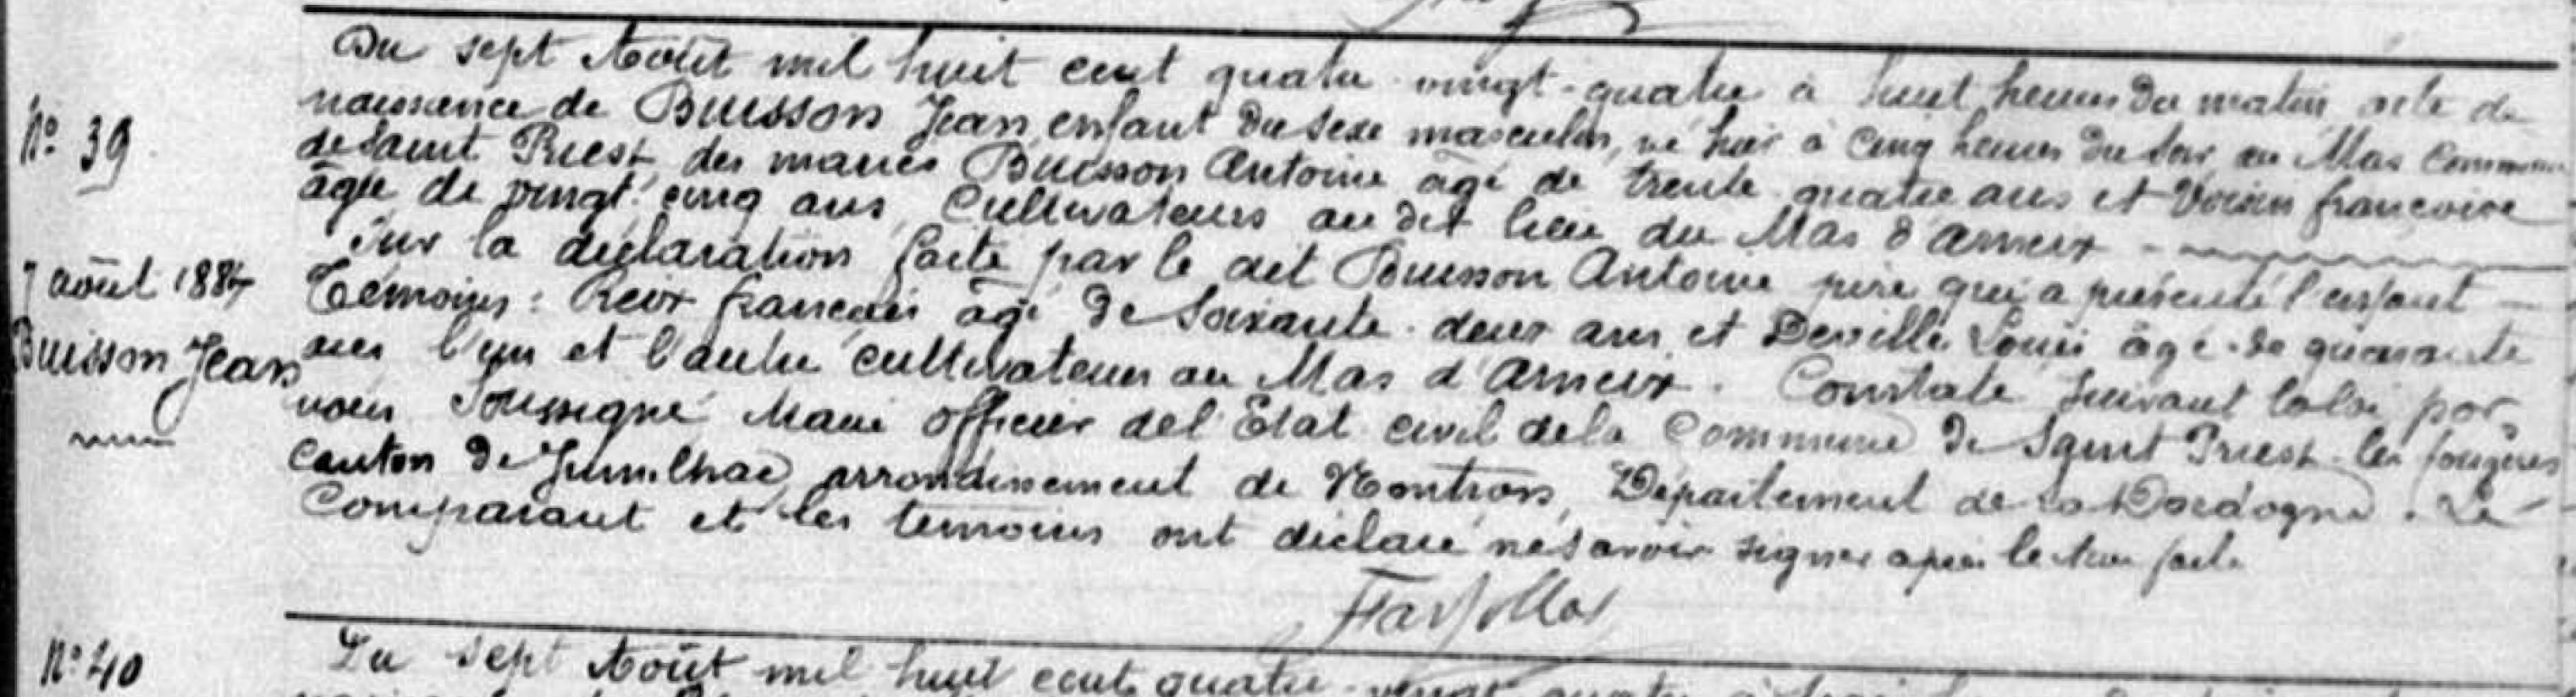 N° 39
7 août 1884
Buisson Jean
Du sept Août mil huit cent quatre-vingt-quatre à huit heures du matin acte de
naissance de Buisson Jean, enfant du sexe masculin, né hier à cinq heures du soir au Mas Commune
de Saint Priest, des mariés Buisson Antoine agé de trente quatre ans et Voisin françoise
âgée de vingt-cinq ans, Cultivateurs au dit lieu du Mas d'Arneix
Sur la déclaration faite par le dit Buisson Antoine père qui a présenté l'enfant
Témoins : Reix françois âgé de Soixante-deux ans et Deville Louis âgé de quarante
ans l'un et l'autre cultivateurs au Mas d'Arneix. Constaté suivant la loi par
nous Soussigné Maire officier de l'Etat civil de la Commune de Saint Priest-les fougères
canton de Jumilhac, arrondissement de Nontron, Département de la Dordogne. Le
Comparant et les temoins ont déclaré ne savoir signer après lecture faite
N° 40
Du sept Août mil huit cent quatre-vingt quatre à